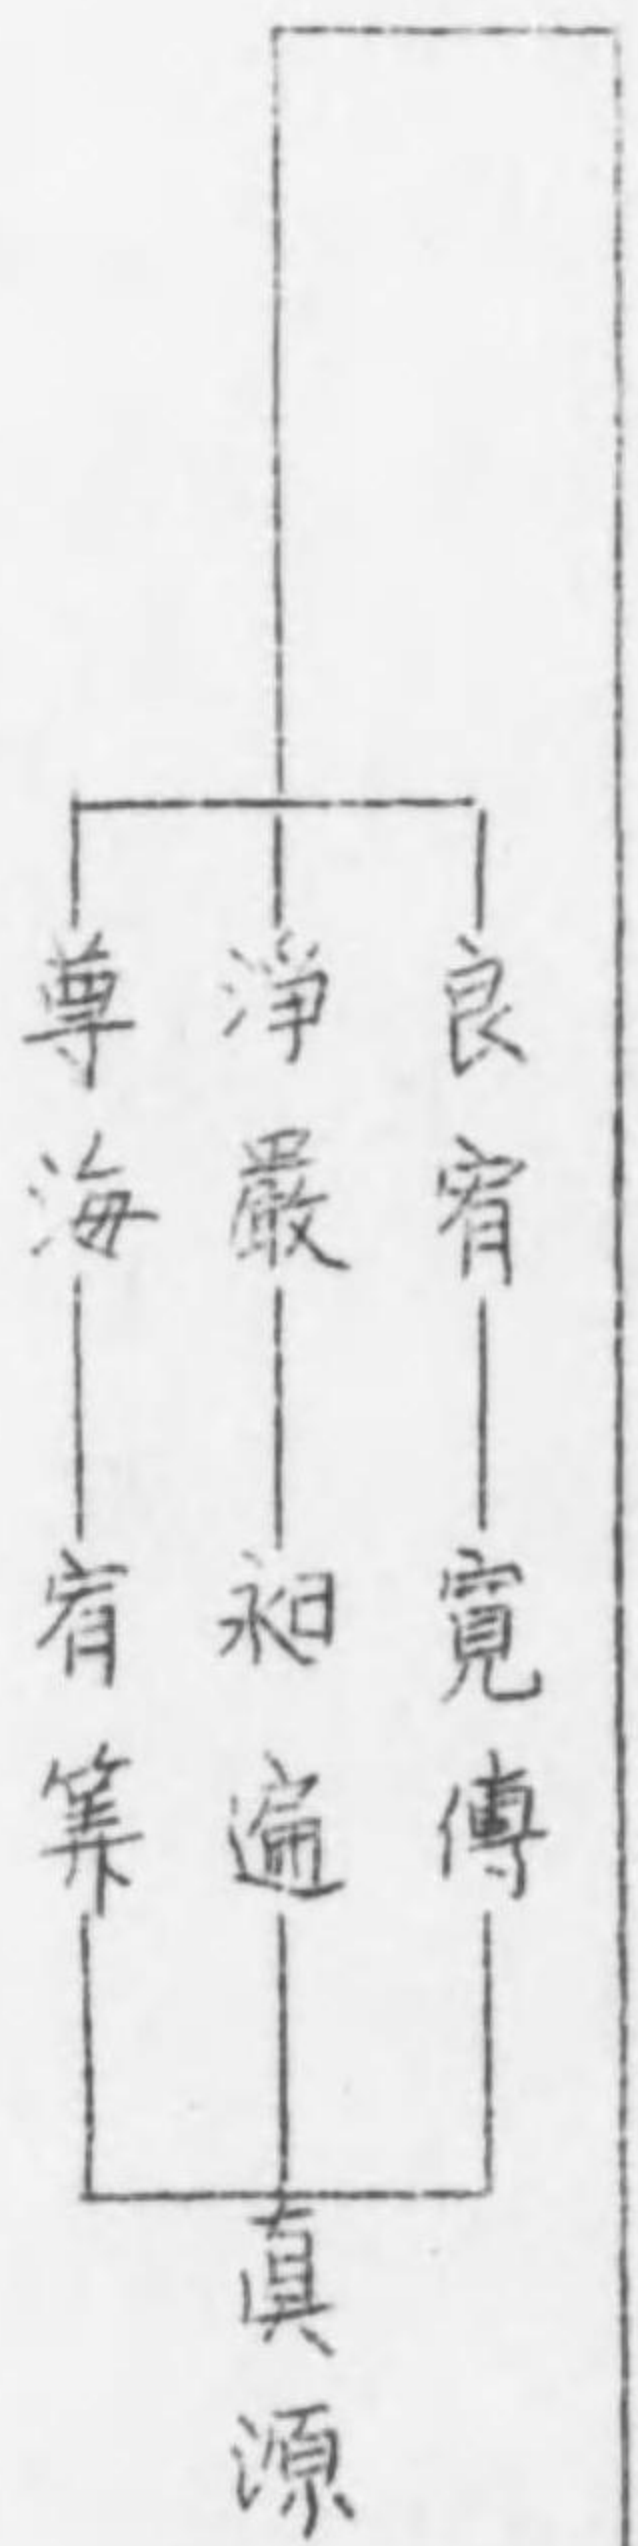 良宥
寛傳
淨嚴
昶遍
尊海
宥筭
眞源